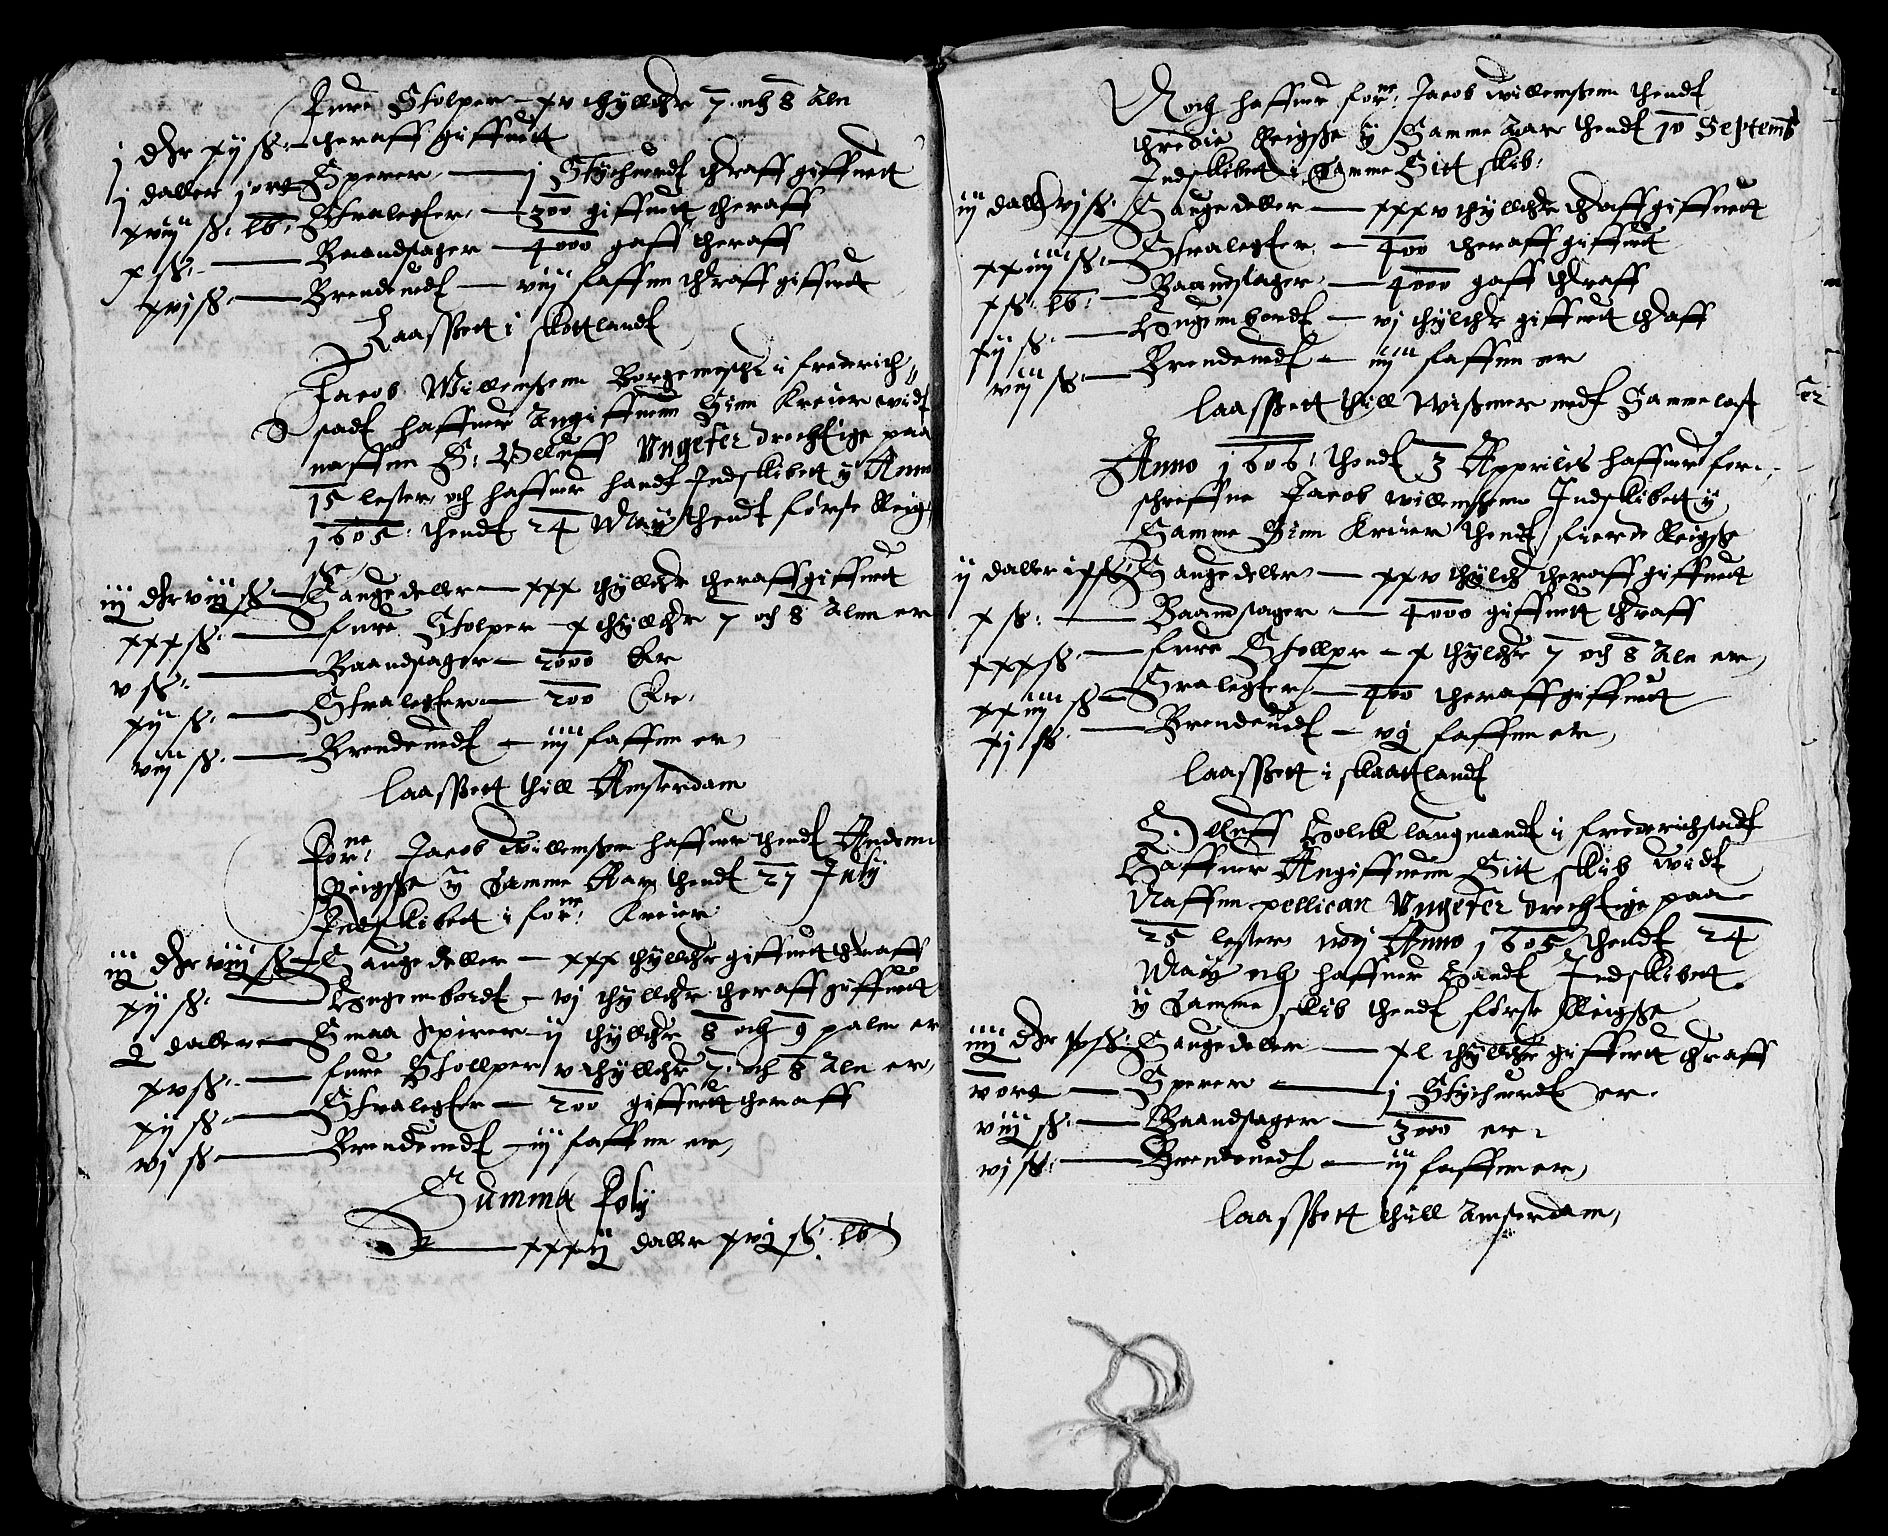 Fure Stolper — xv thyllther 7 och 8 Aln
j dlr xij ß — theraff giffuett
j daller j ort Sperer — j Stychuerdt theraff giffuett
xviij ß. lb. Stralegter — 300 giffuett theraff
x ß. — Baandstager — 4000 gaff theraff
xvj ß. — Brendeuedt — viij faffnn theraff giffuett
Laassett i skottlandt
Jacob Willemssenn Borgemester i Frederich
stadt haffuer Angiffuenn Sinn Kreier widt
naffnn S: Oeluff Vngefer drechtige paa
15 lester och haffuer handt Indskibett ÿ Anno
1605. thendt 24 Maÿ thendt første Reig
sse
iij dlr viij ß — Sauge deller — xxx thyllther theraff giffuett
xxx ß. — fure Stolper — x thyllther 7 och 8 Alnn er
v ß. — Baandstager — 2000 Er
xij ß. — Stralegter — 200 Er.
viij ß. — Brendeuedt — iiij faffnn er
laassett thill Amsterdam
Forne: Jacob Willemssen haffuer thendt Andenn
Reigsse ÿ Samme Aar thendt 27 July
Indskibett i forne: Kreier
iij dlr viij ß — Sauge deller — xxx thyllther giffuett theraff
xij ß. — Hugenbordt — vj thyllther theraff giffuett
daller — Smaa Spirer — ij thyllther 8 och 9 palm er
xv ß. — fure Stollper v thyllther 7. och 8 Aln er,
xij ß. — Stralegter — 200 giffuett theraff
vj ß — Brendeuedt — iij faffnn er,
Summa Foly
— xxxij daller xvj ß. lb
Noch haffuer forne: Jacob Willemssenn thendt
thredie Reigsse ÿ Samme Aar thendt 10 Septemb
Indskibett i Samme Sitt skib:
iij daller vj ß. Sauge deller — xxxv thyllther theraff giffuett
xxiiij ß. — Stralegter. — 400 theraff giffuett
x ß. lb. — Baandstager — 4000 gaff theraff
xij ß. — Hugenbordt — vj thylther giffuett theraff
viij ß. — Brendeuedt — iiij faffnn er
laassett thill Wissmer medt Samme last
Anno 1606: thendt 3 Apprilis haffuer for-
schreffne Jacob willemssenn Indskibett ÿ
Samme Sinn Kreier thendt fierde Reigsse
ij daller ixß. Sauge deller — xxv thylth theraff giffuett
x ß. — Baandstager — 4000 giffuett theraff
xxx ß. — fure Stollper — x thylther 7 och 8 Aln er,
xxiiij ß — Stralegter — 400 theraff giffuett
xj ß — Brendeuedt — vj faffnn er,
laassett i skaattlandt
S. Olluff Holck laugmandt i frederichstadt
Haffuer Angiffuenn Sitt skib widt
Naffnn pellican Vngefer drechtige paa
25 lester wdj Anno 1605 thendt 24
Maÿ och haffuer Handt Indskibett
ÿ Samme skib thendt første Reigsse
iiij dlr xß. Sauge deller — xl thyllther giffuett theraff
v ort — Sperer — j Stychuerdt er.
viij ß. — Baandstager — 3000 er.
vj ß. — Brendeuedt — iij faffnn er,
laassett thill Amsterdam,